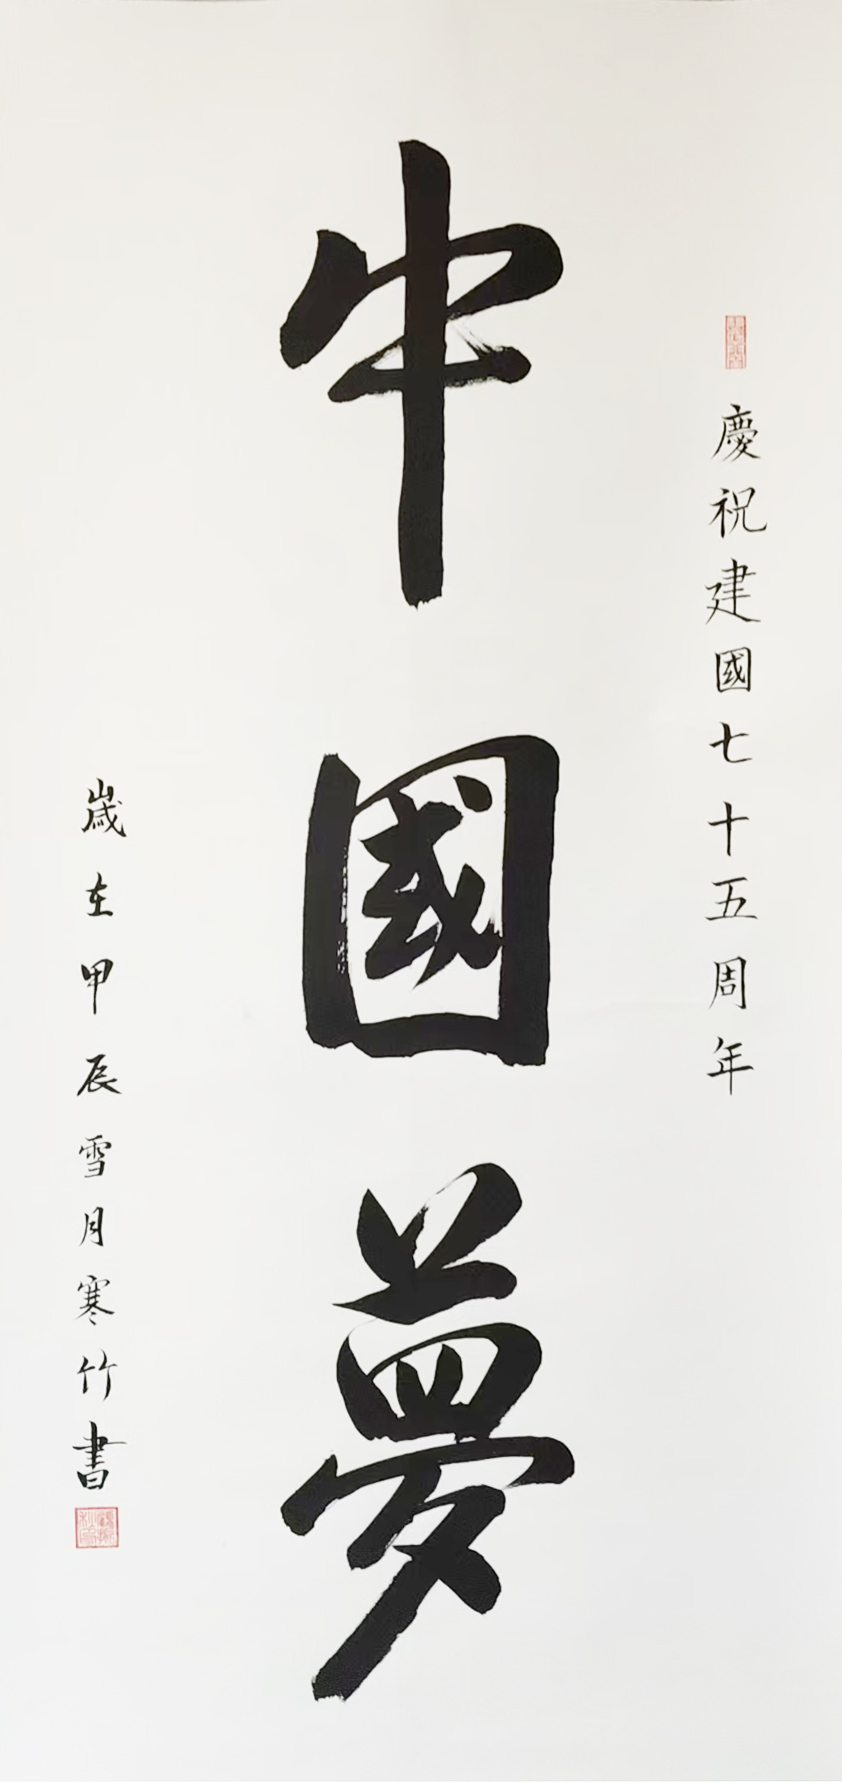 慶祝建國七十五周年
中國夢
歲在甲辰雪月寒竹書